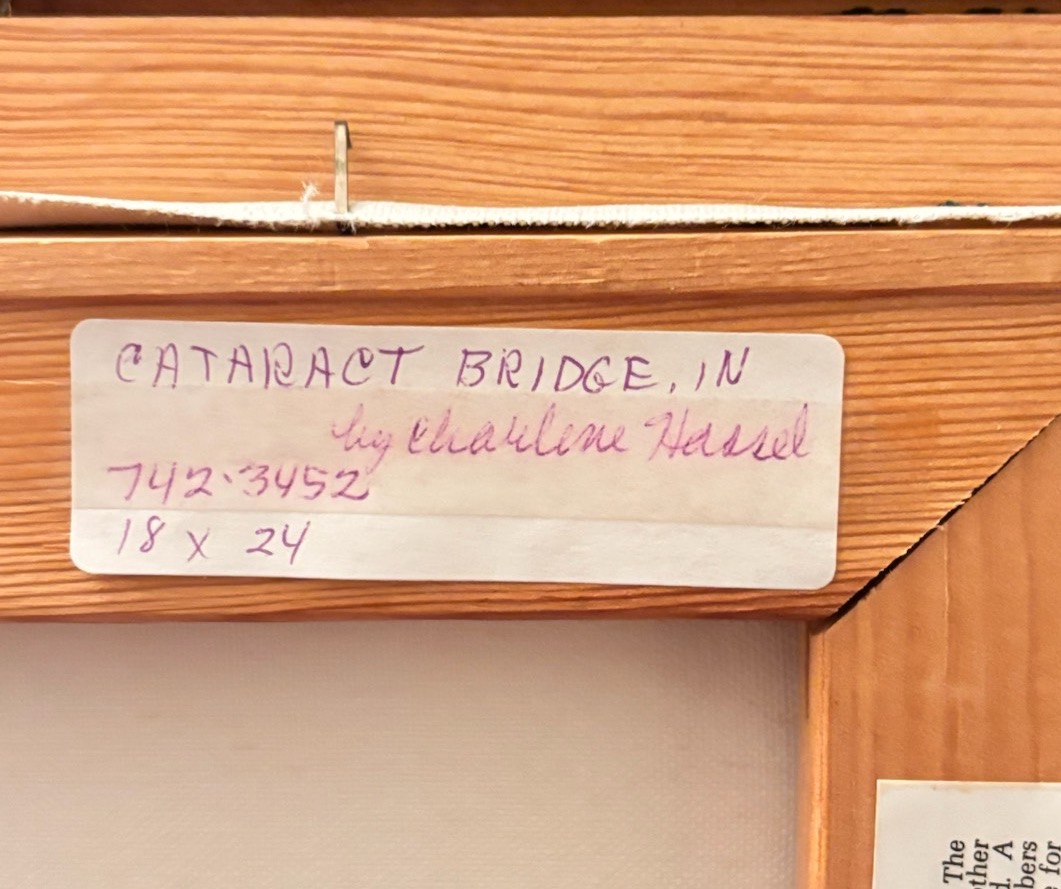 CATARACT BRIDGE, IN
by Charlene Hassel
742-3452
18 x 24
The
ther
d. A
bers
for